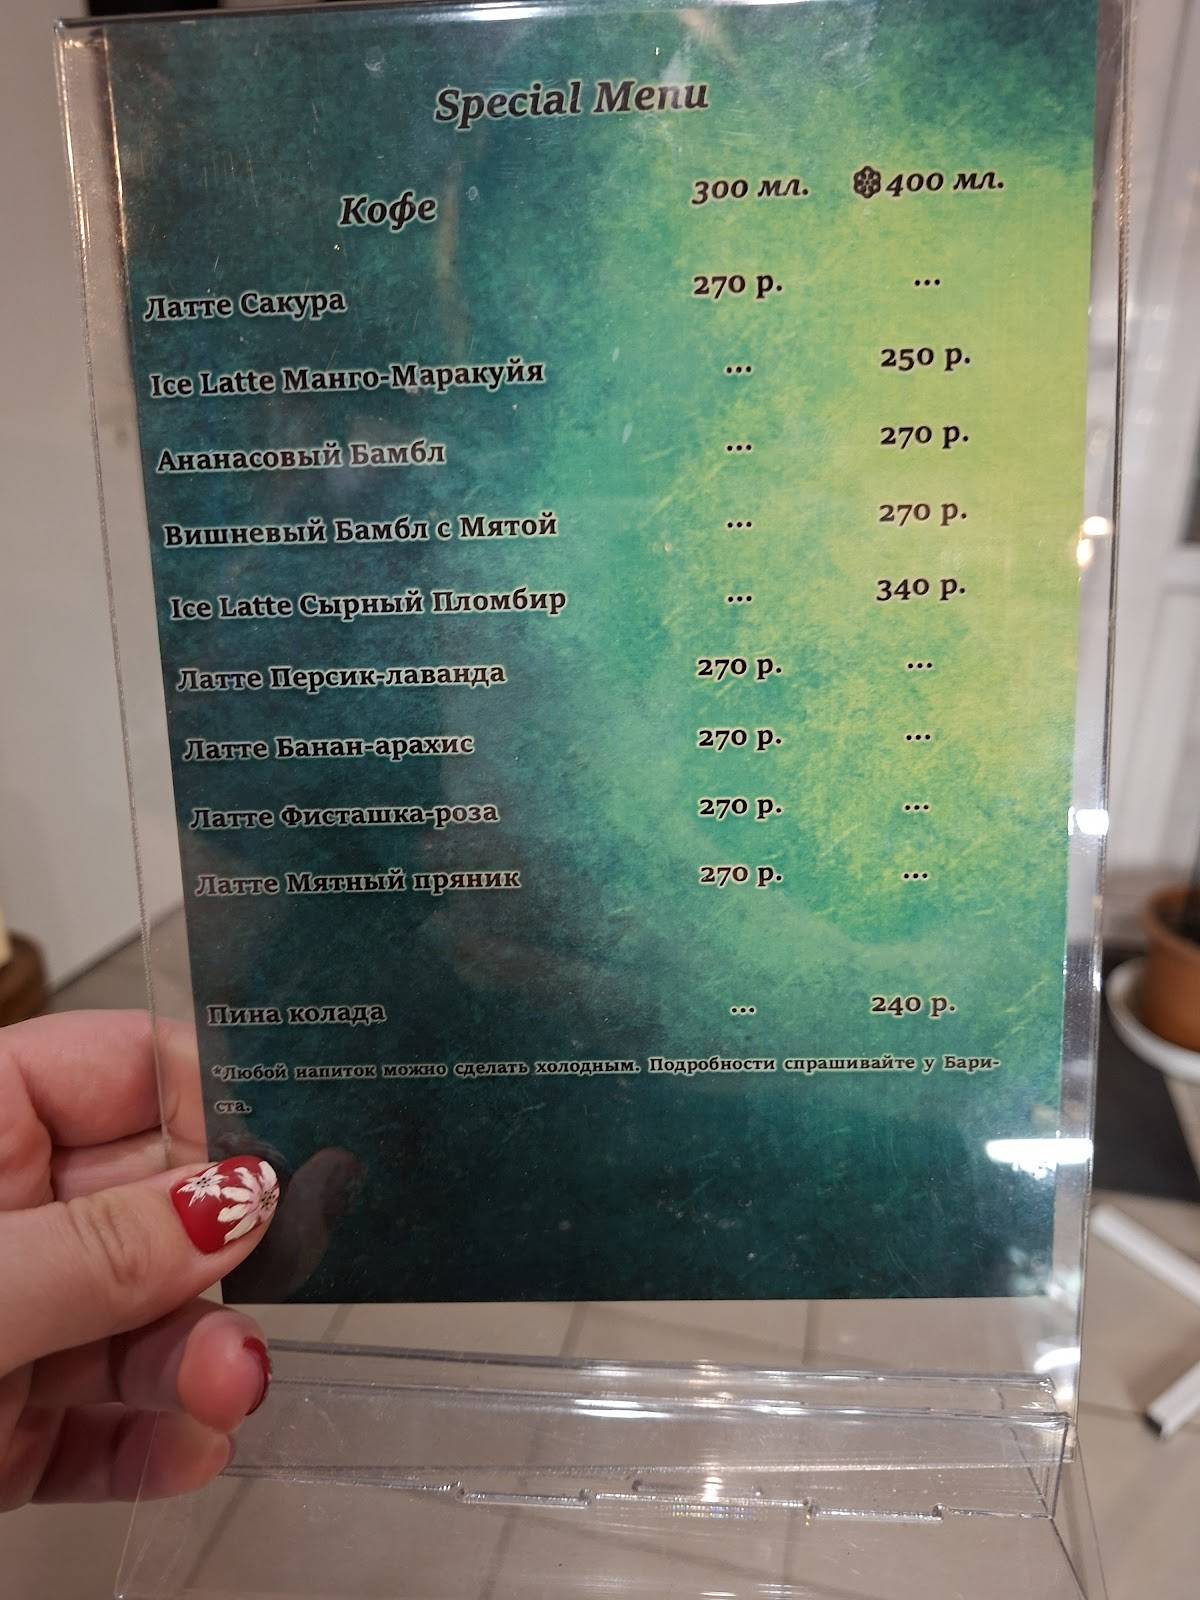 Special Menu
Кофе 300 мл. 400 мл.
Латте Сакура 270 р. ...
Ice Latte Манго-Маракуйя ... 250 р.
Ананасовый Бамбл ... 270 р.
Вишневый Бамбл с Мятой ... 270 р.
Ice Latte Сырный Пломбир ... 340 р.
Латте Персик-лаванда 270 р. ...
Латте Банан-арахис 270 р. ...
Латте Фисташка-роза 270 р. ...
Латте Мятный пряник 270 р. ...
Пина колада ... 240 р.
*Любой напиток можно сделать холодным. Подробности спрашивайте у Бари-
ста.